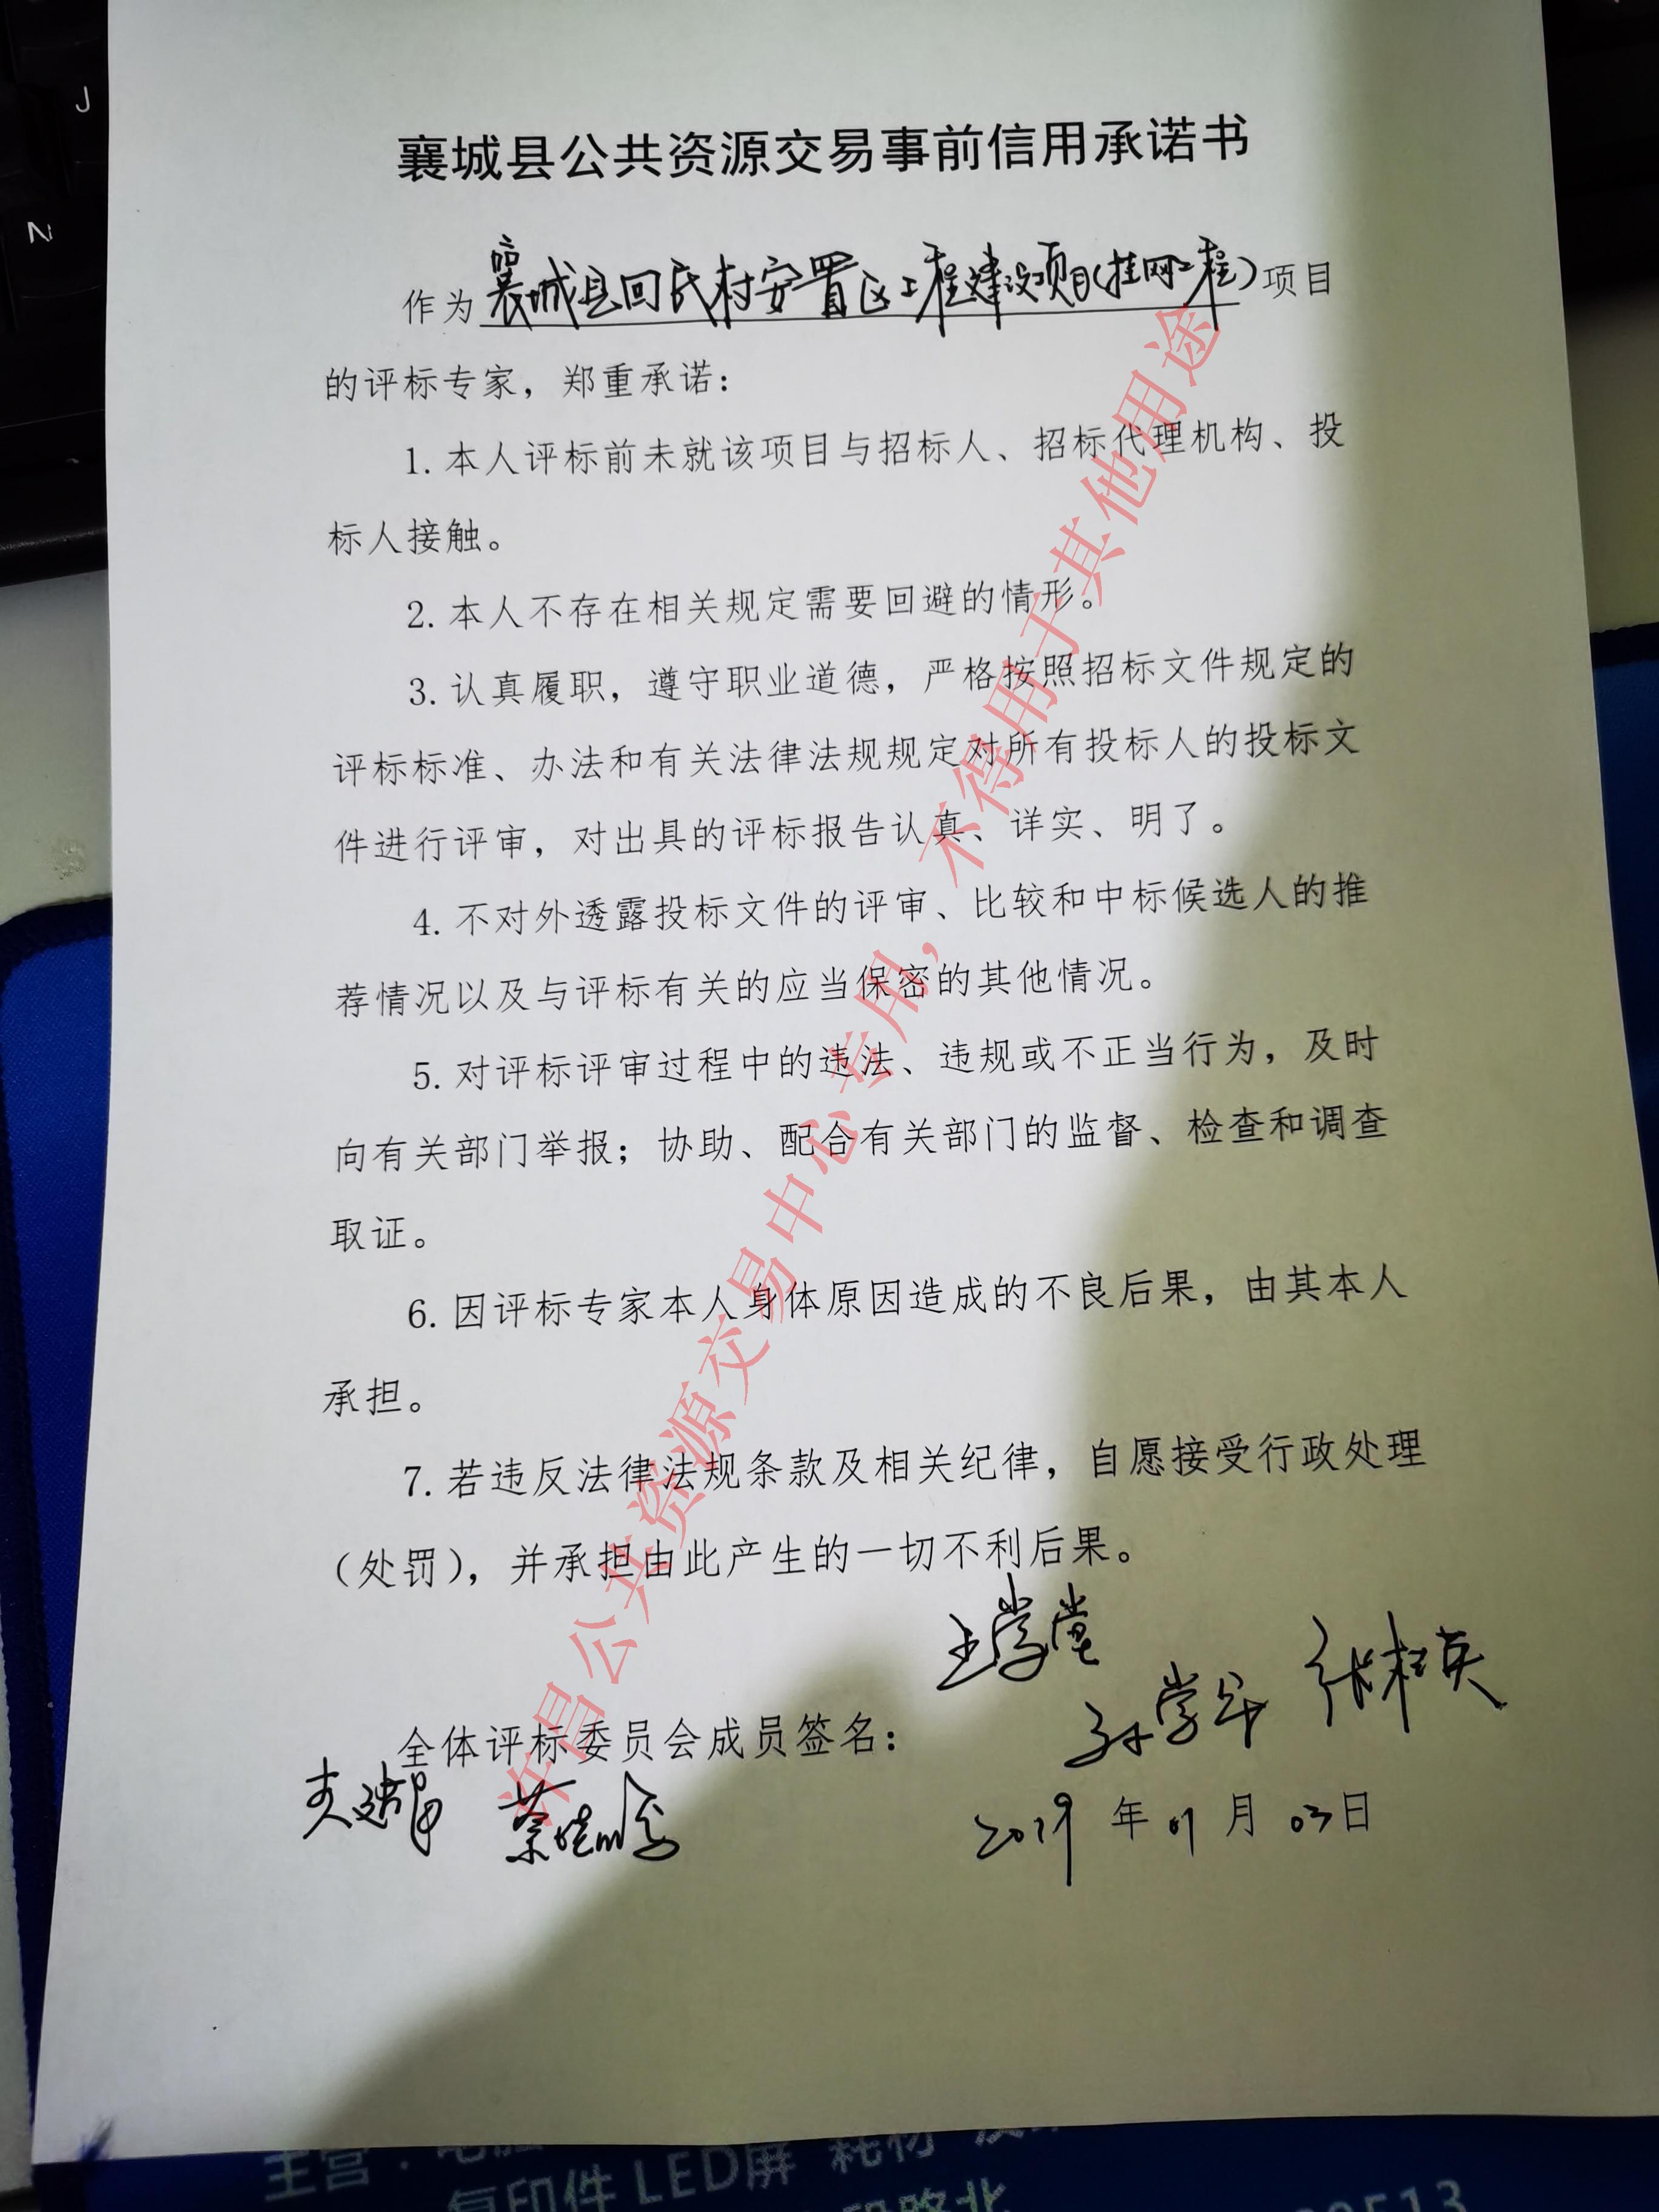 J
N
襄城县公共资源交易事前信用承诺书
作为襄城县回民村安置区工程建设项目(挂网工程)项目
的评标专家，郑重承诺：
1.本人评标前未就该项目与招标人、招标代理机构、投
标人接触。
2.本人不存在相关规定需要回避的情形。
3.认真履职，遵守职业道德，严格按照招标文件规定的
评标标准、办法和有关法律法规规定对所有投标人的投标文
件进行评审，对出具的评标报告认真、详实、明了。
4.不对外透露投标文件的评审、比较和中标候选人的推
荐情况以及与评标有关的应当保密的其他情况。
5.对评标评审过程中的违法、违规或不正当行为，及时
向有关部门举报；协助、配合有关部门的监督、检查和调查
取证。
6.因评标专家本人身体原因造成的不良后果，由其本人
承担。
7.若违反法律法规条款及相关纪律，自愿接受行政处理
（处罚），并承担由此产生的一切不利后果。
王学堂
孙学军 张桂英
全体评标委员会成员签名：
2019年01月03日
许昌公共资源交易中心专用，不得用于其他用途
主营：电脑
复印件 LED屏 耗材
段路北